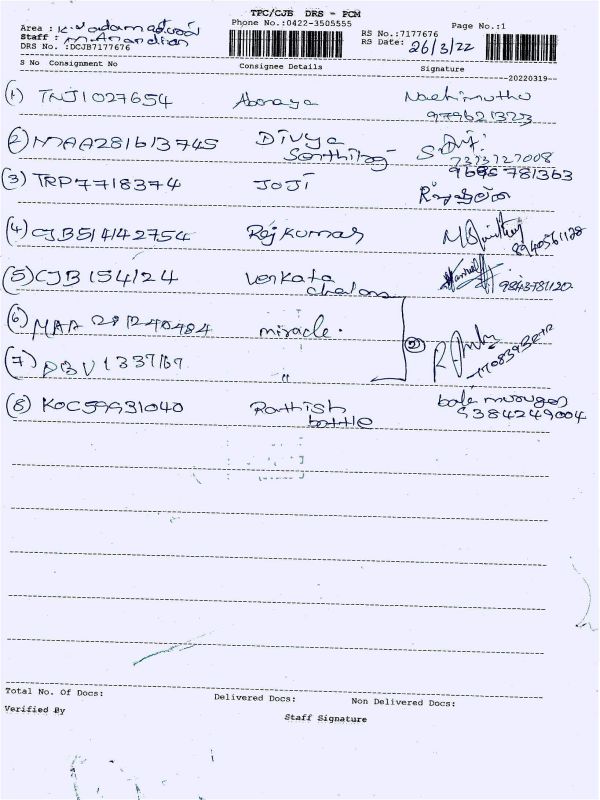 TPC/CJB DRS - PCM
Area : K.Vadamadurai Phone No.:0422-3505555 Page No.:1
Staff : M.Anandian RS No.:7177676
DRS No. :DCJB7177676 RS Date: 26/3/22
S No Consignment No Consignee Details Signature
--20220319--
(1) TNJ1027654 Nachimuthu
979621323
(2) MAA281613745 Divya
Senthilraj
7373727008
(3) TRP7718374 JOJI 9685 781363
(4) CJB514142754 Rajkumar
8940561128
(5) CJB154124 Venkata
chalam 9843781120
(6) MAA 281240484 miracle.
(7) PBV1337167 "
(8) KOC59931040 Rathish bala murugan
bottle 9384249004
Total No. Of Docs: Delivered Docs: Non Delivered Docs:
Verified By Staff Signature